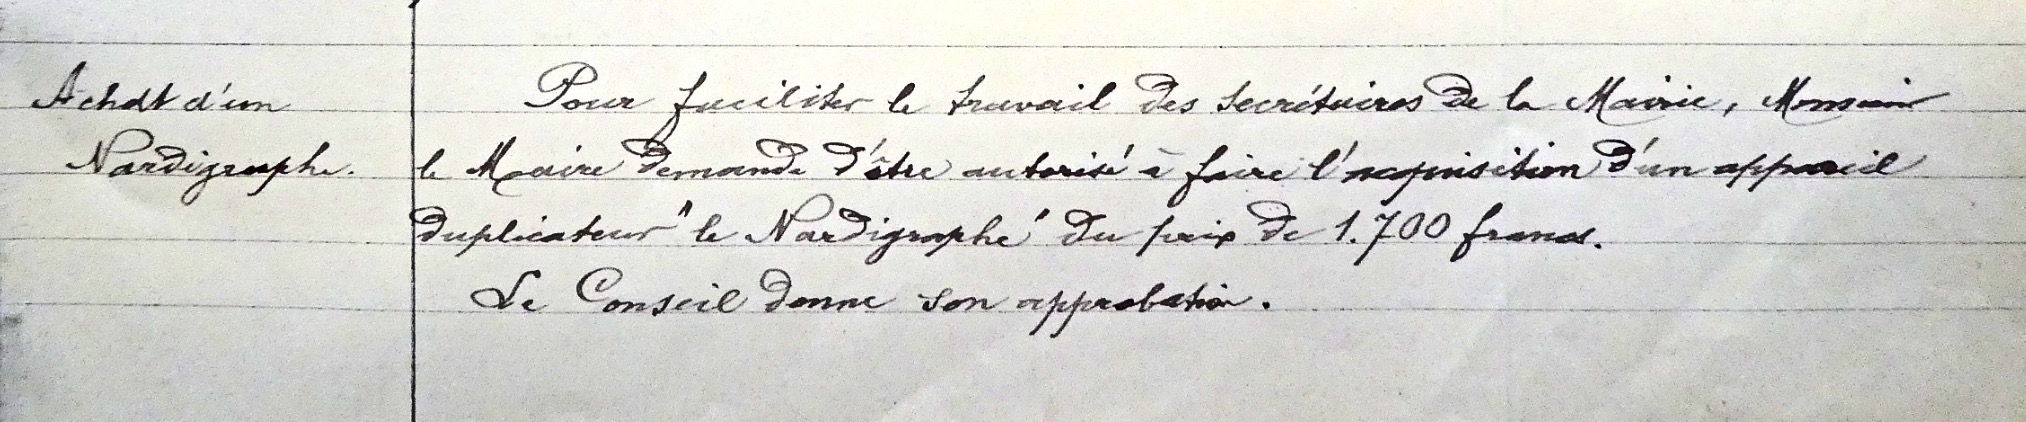 Achat d'un
Nardigraphe.
Pour faciliter le travail des secrétaires de la Mairie, Monsieur
le Maire demande d'être autorisé à faire l'acquisition d'un appareil
duplicateur "le Nardigraphe" du prix de 1.700 francs.
Le Conseil donne son approbation.